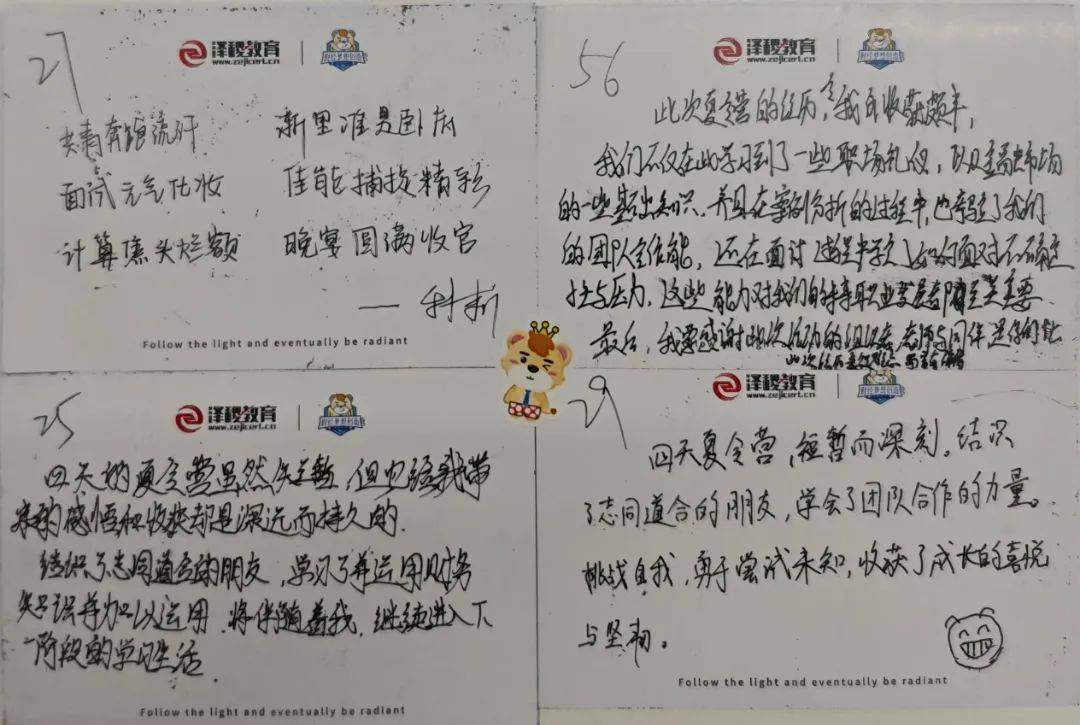 27
泽稷教育
www.zejicert.cn
财经梦想创造营
新里准是卧床
面试元气化妆
佳能捕捉精彩
计算焦头烂额
晚宴圆满收官
Follow the light and eventually be radiant
56
泽稷教育
www.zejicert.cn
此次夏令营的经历令我自收获颇丰，
我们不仅在此学习到了一些职场礼仪，以及金融市场
的一些基础知识，并且在案例分析的过程中，也考验了我们
的团队合作能，还在面讨过程中学
性与压力，这些能力对我们的将来职业发展都有至关重要
最后，我要感谢此次活动的组织者，老师与同伴
25
泽稷教育
www.zejicert.cn
财经梦想创造营
四天的夏令营虽然短暂，但也给我带
来的感悟和收获却是深远而持久的。
结识了志同道合的朋友，学习了并运用财务
知识并加以运用，将伴随着我，继续进入下
一阶段的学习生活
Follow the light and eventually be radiant
29
泽稷教育
www.zejicert.cn
四天夏令营，短暂而深刻。结识
了志同道合的朋友，学会了团队合作的力量。
挑战自我，勇于尝试未知，收获了成长的喜悦
与坚韧。
Follow the light and eventually be radiant